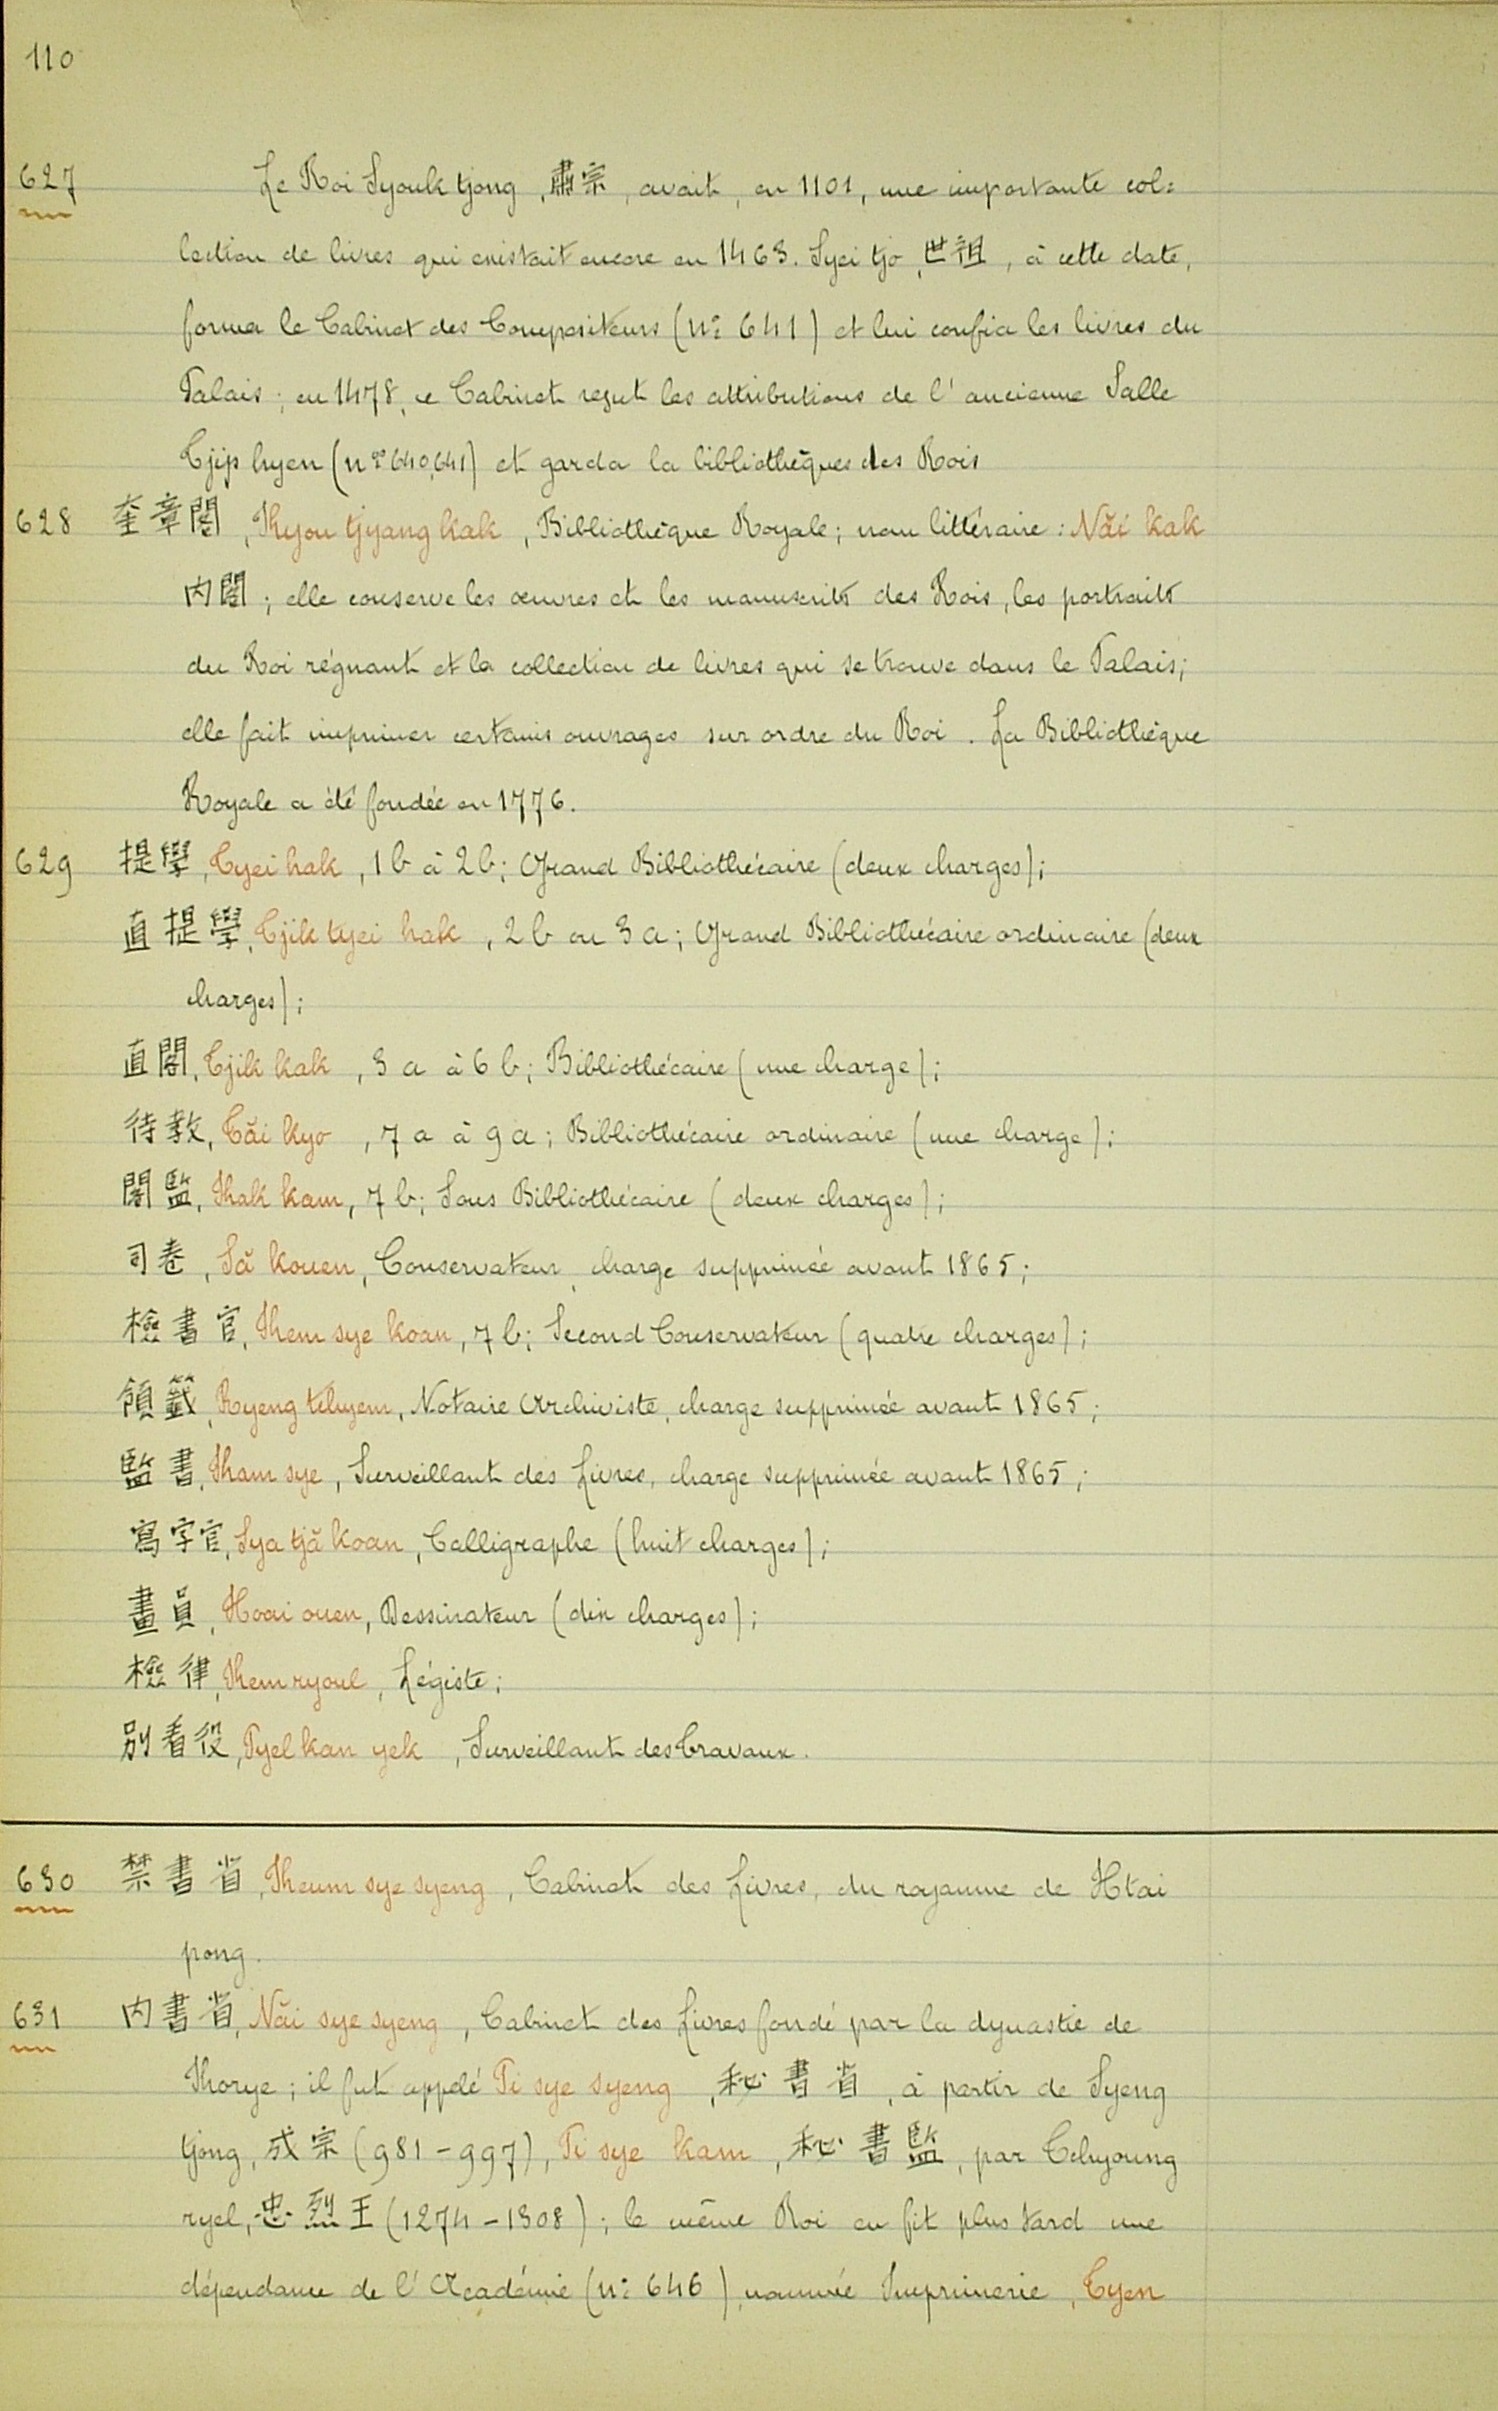 110
627 Le Roi Syouk tjong, 肅宗, avait, en 1101, une importante col=
lection de livres qui existait encore en 1463. Syei tjo, 世祖, à cette date,
forma le Cabinet des Compositeurs (n° 641) et lui confia les livres du
Palais; en 1478, ce Cabinet reçut les attributions de l'ancienne Salle
Tjip hyen (n°s 640, 641) et garda la bibliothèques des Rois
628 奎章閣, Kyou tjyang kak, Bibliothèque Royale; nom littéraire: Năi kak
內閣; elle conserve les œuvres et les manuscrits des Rois, les portraits
du Roi régnant et la collection de livres qui se trouve dans le Palais;
elle fait imprimer certains ouvrages sur ordre du Roi. La Bibliothèque
Royale a été fondée en 1776.
629 提學, Tyei hak, 1b à 2b; Grand Bibliothécaire (deux charges);
直提學, Tjik tyei hak, 2b ou 3a; Grand Bibliothécaire ordinaire (deux
charges);
直閣, Tjik kak, 3a à 6b; Bibliothécaire (une charge);
待敎, Tăi kyo, 7a à 9a; Bibliothécaire ordinaire (une charge);
閣監, Kak kam, 7b; Sous Bibliothécaire (deux charges);
司卷, Să kouen, Conservateur, charge supprimée avant 1865;
檢書官, Kem sye koan, 7b; Second Conservateur (quatre charges);
領籤, Ryeng tchyem, Notaire Archiviste, charge supprimée avant 1865;
監書, Kam sye, Surveillant des Livres, charge supprimée avant 1865;
寫字官, Sya tjă koan, Calligraphe (huit charges);
畫員, Hoai ouen, Dessinateur (dix charges);
檢律, Kem ryoul, Légiste;
別看役, Pyel kan yek, Surveillant des Travaux.
630 禁書省, Keum sye syeng, Cabinet des Livres, du royaume de Htai
pong.
631 內書省, Năi sye syeng, Cabinet des Livres fondé par la dynastie de
Korye; il fut appelé Pi sye syeng, 秘書省, à partir de Syeng
tjong, 成宗 (981-997), Pi sye kam, 秘書監, par Tchyoung
ryel, 忠烈王 (1274-1308); le même Roi en fit plus tard une
dépendance de l'Académie (n° 646), nommée Imprimerie, Tyen